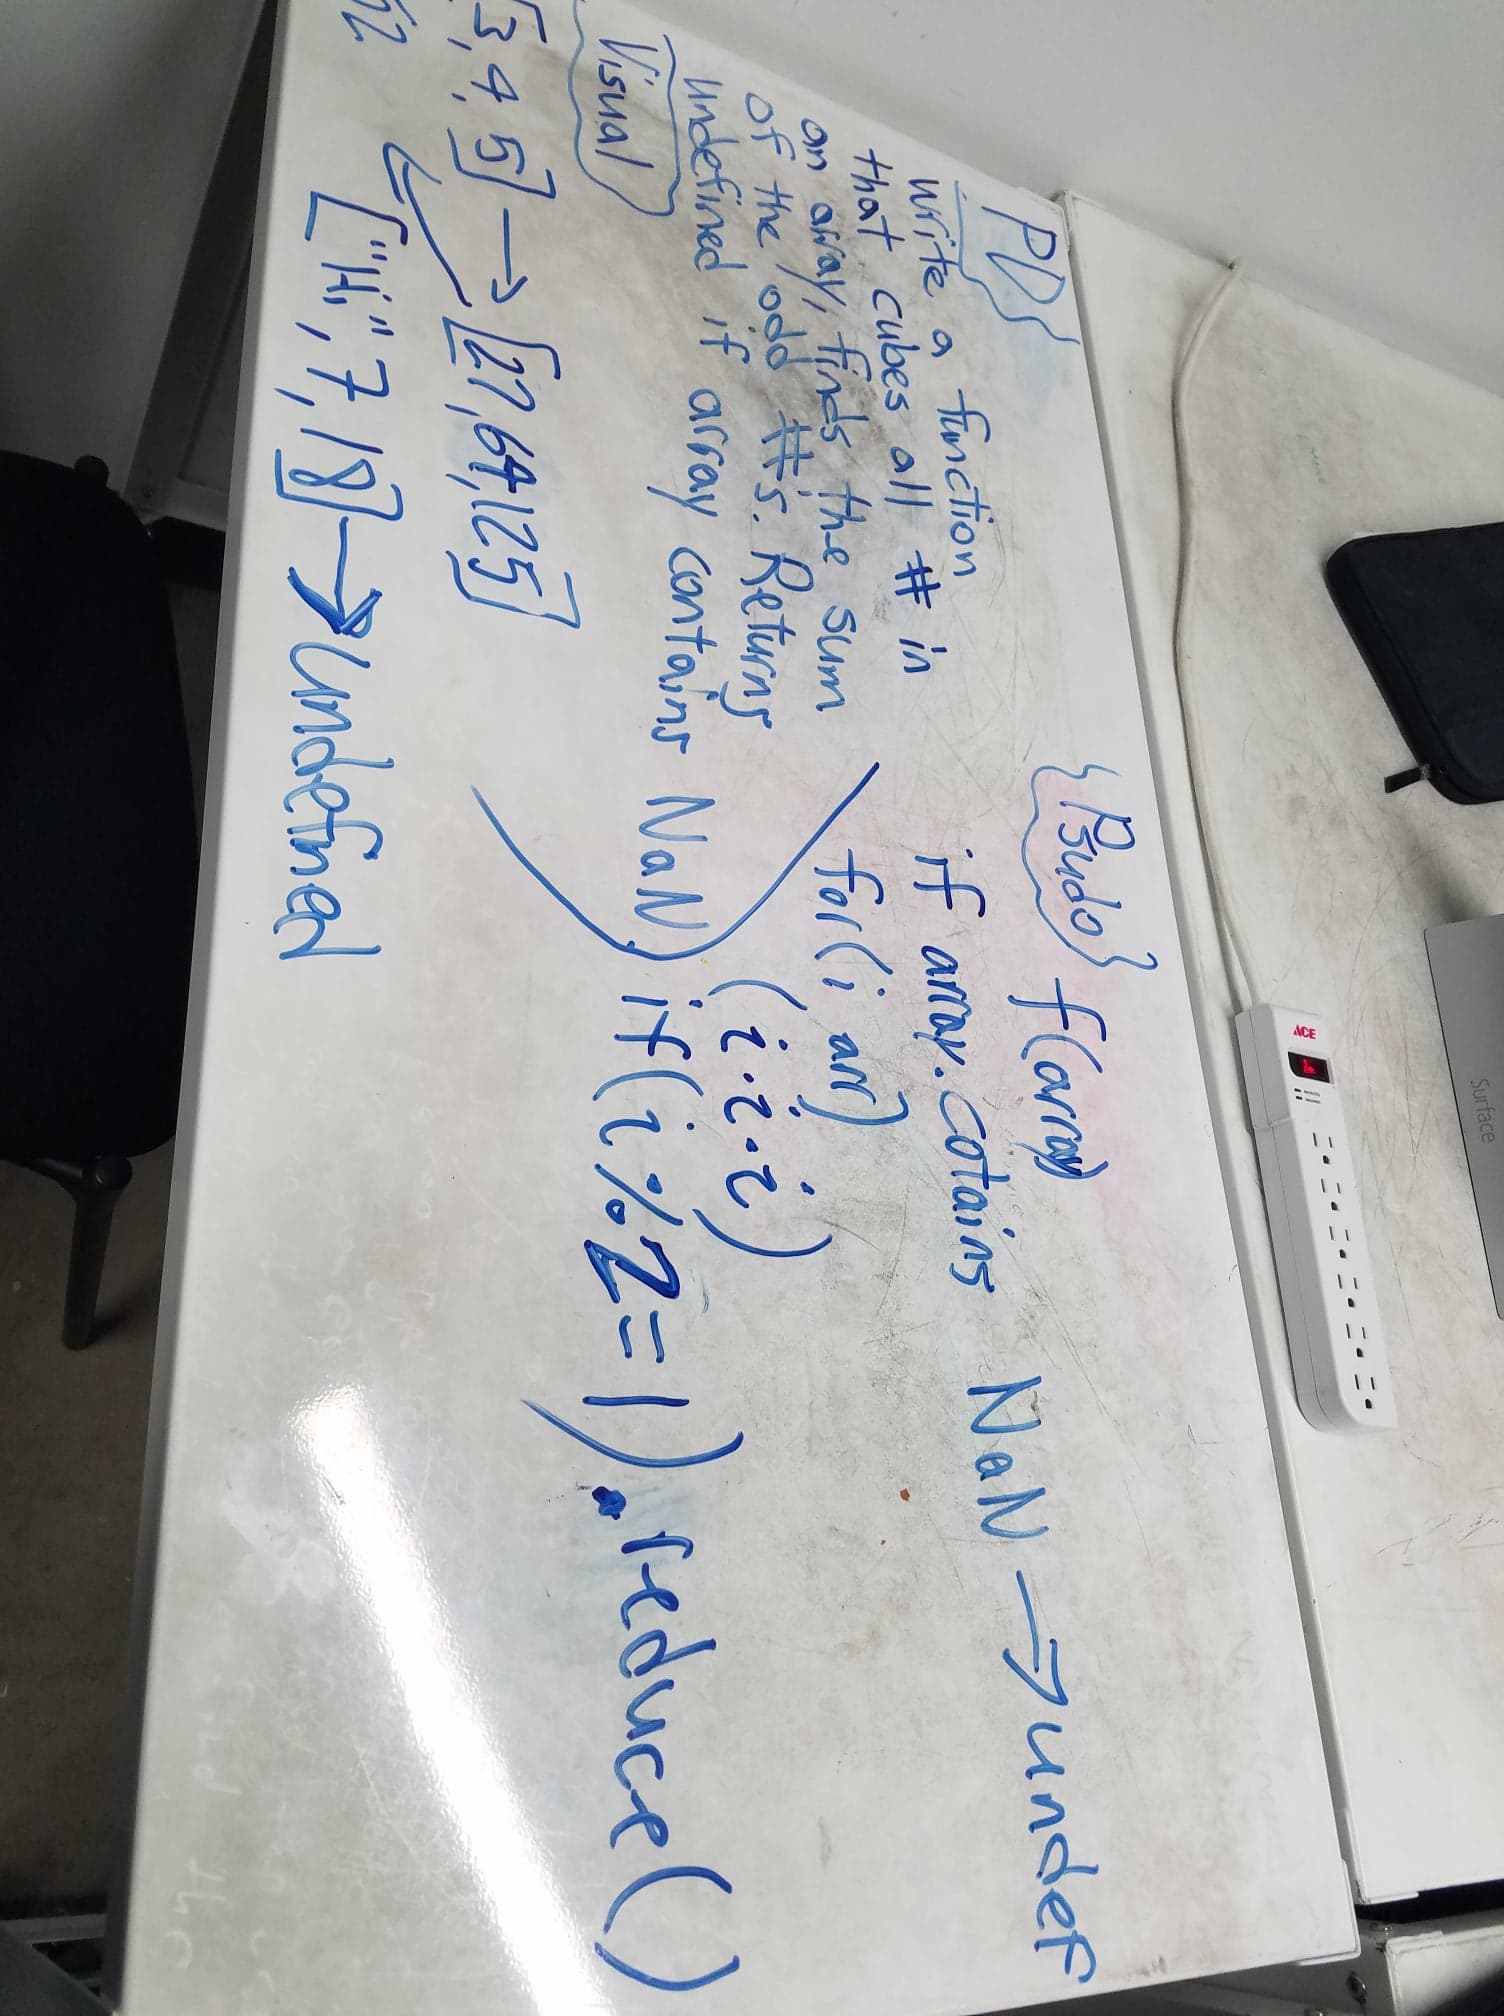 PD
write a function
that cubes all # in
an array, finds the sum
of the odd #s. Returns
undefined if array contains NaN
Visual
[3, 4, 5] → [27, 64, 125]
52
["Hi", 7, 18] → undefined
{Psudo} f(array)
if array.cotains NaN → undef
for(i arr)
(i·i·i)
if(i%2=1).reduce()
ACE
Surface